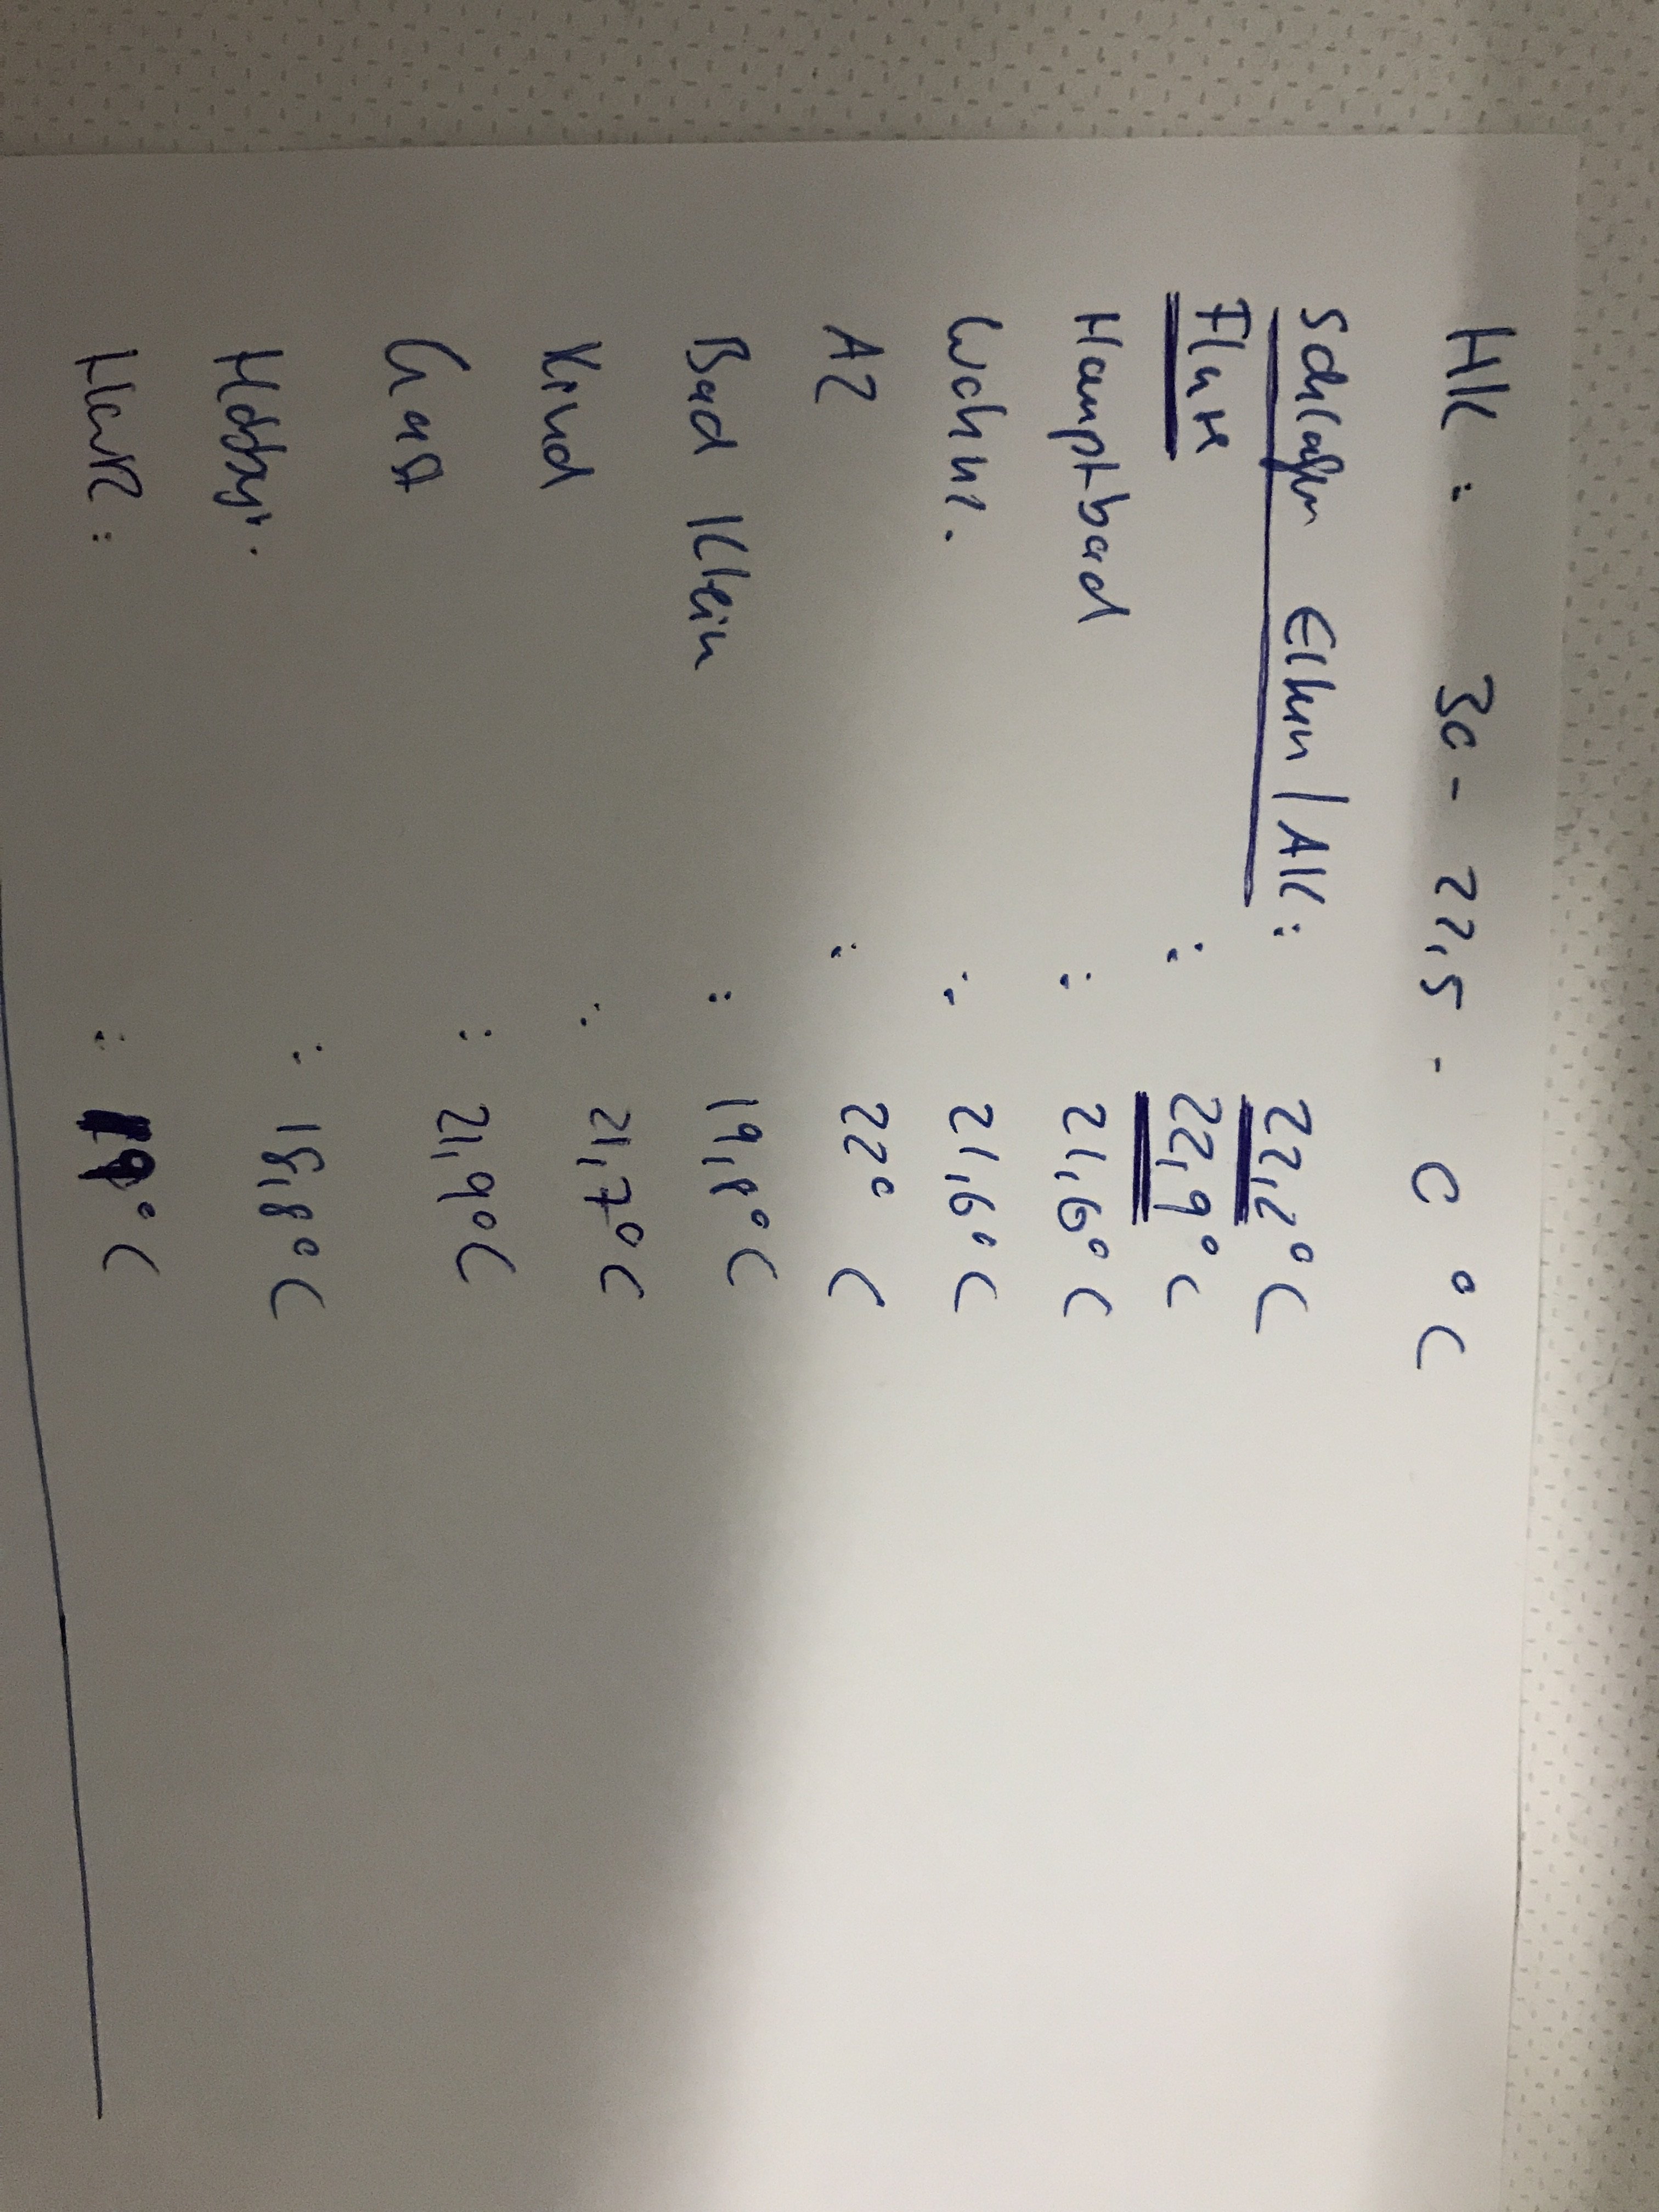 HK : 30 - 22,5 - 0 °C
Schlafen Eltern / AK : 22,2 °C
Flure : 22,9 °C
Hauptbad : 21,6 °C
Wohnz. : 21,6 °C
AZ : 22° C
Bad Klein : 19,8 °C
Kind : 21,7 °C
Gast : 21,9 °C
Hobbyr. : 18,8 °C
: °C